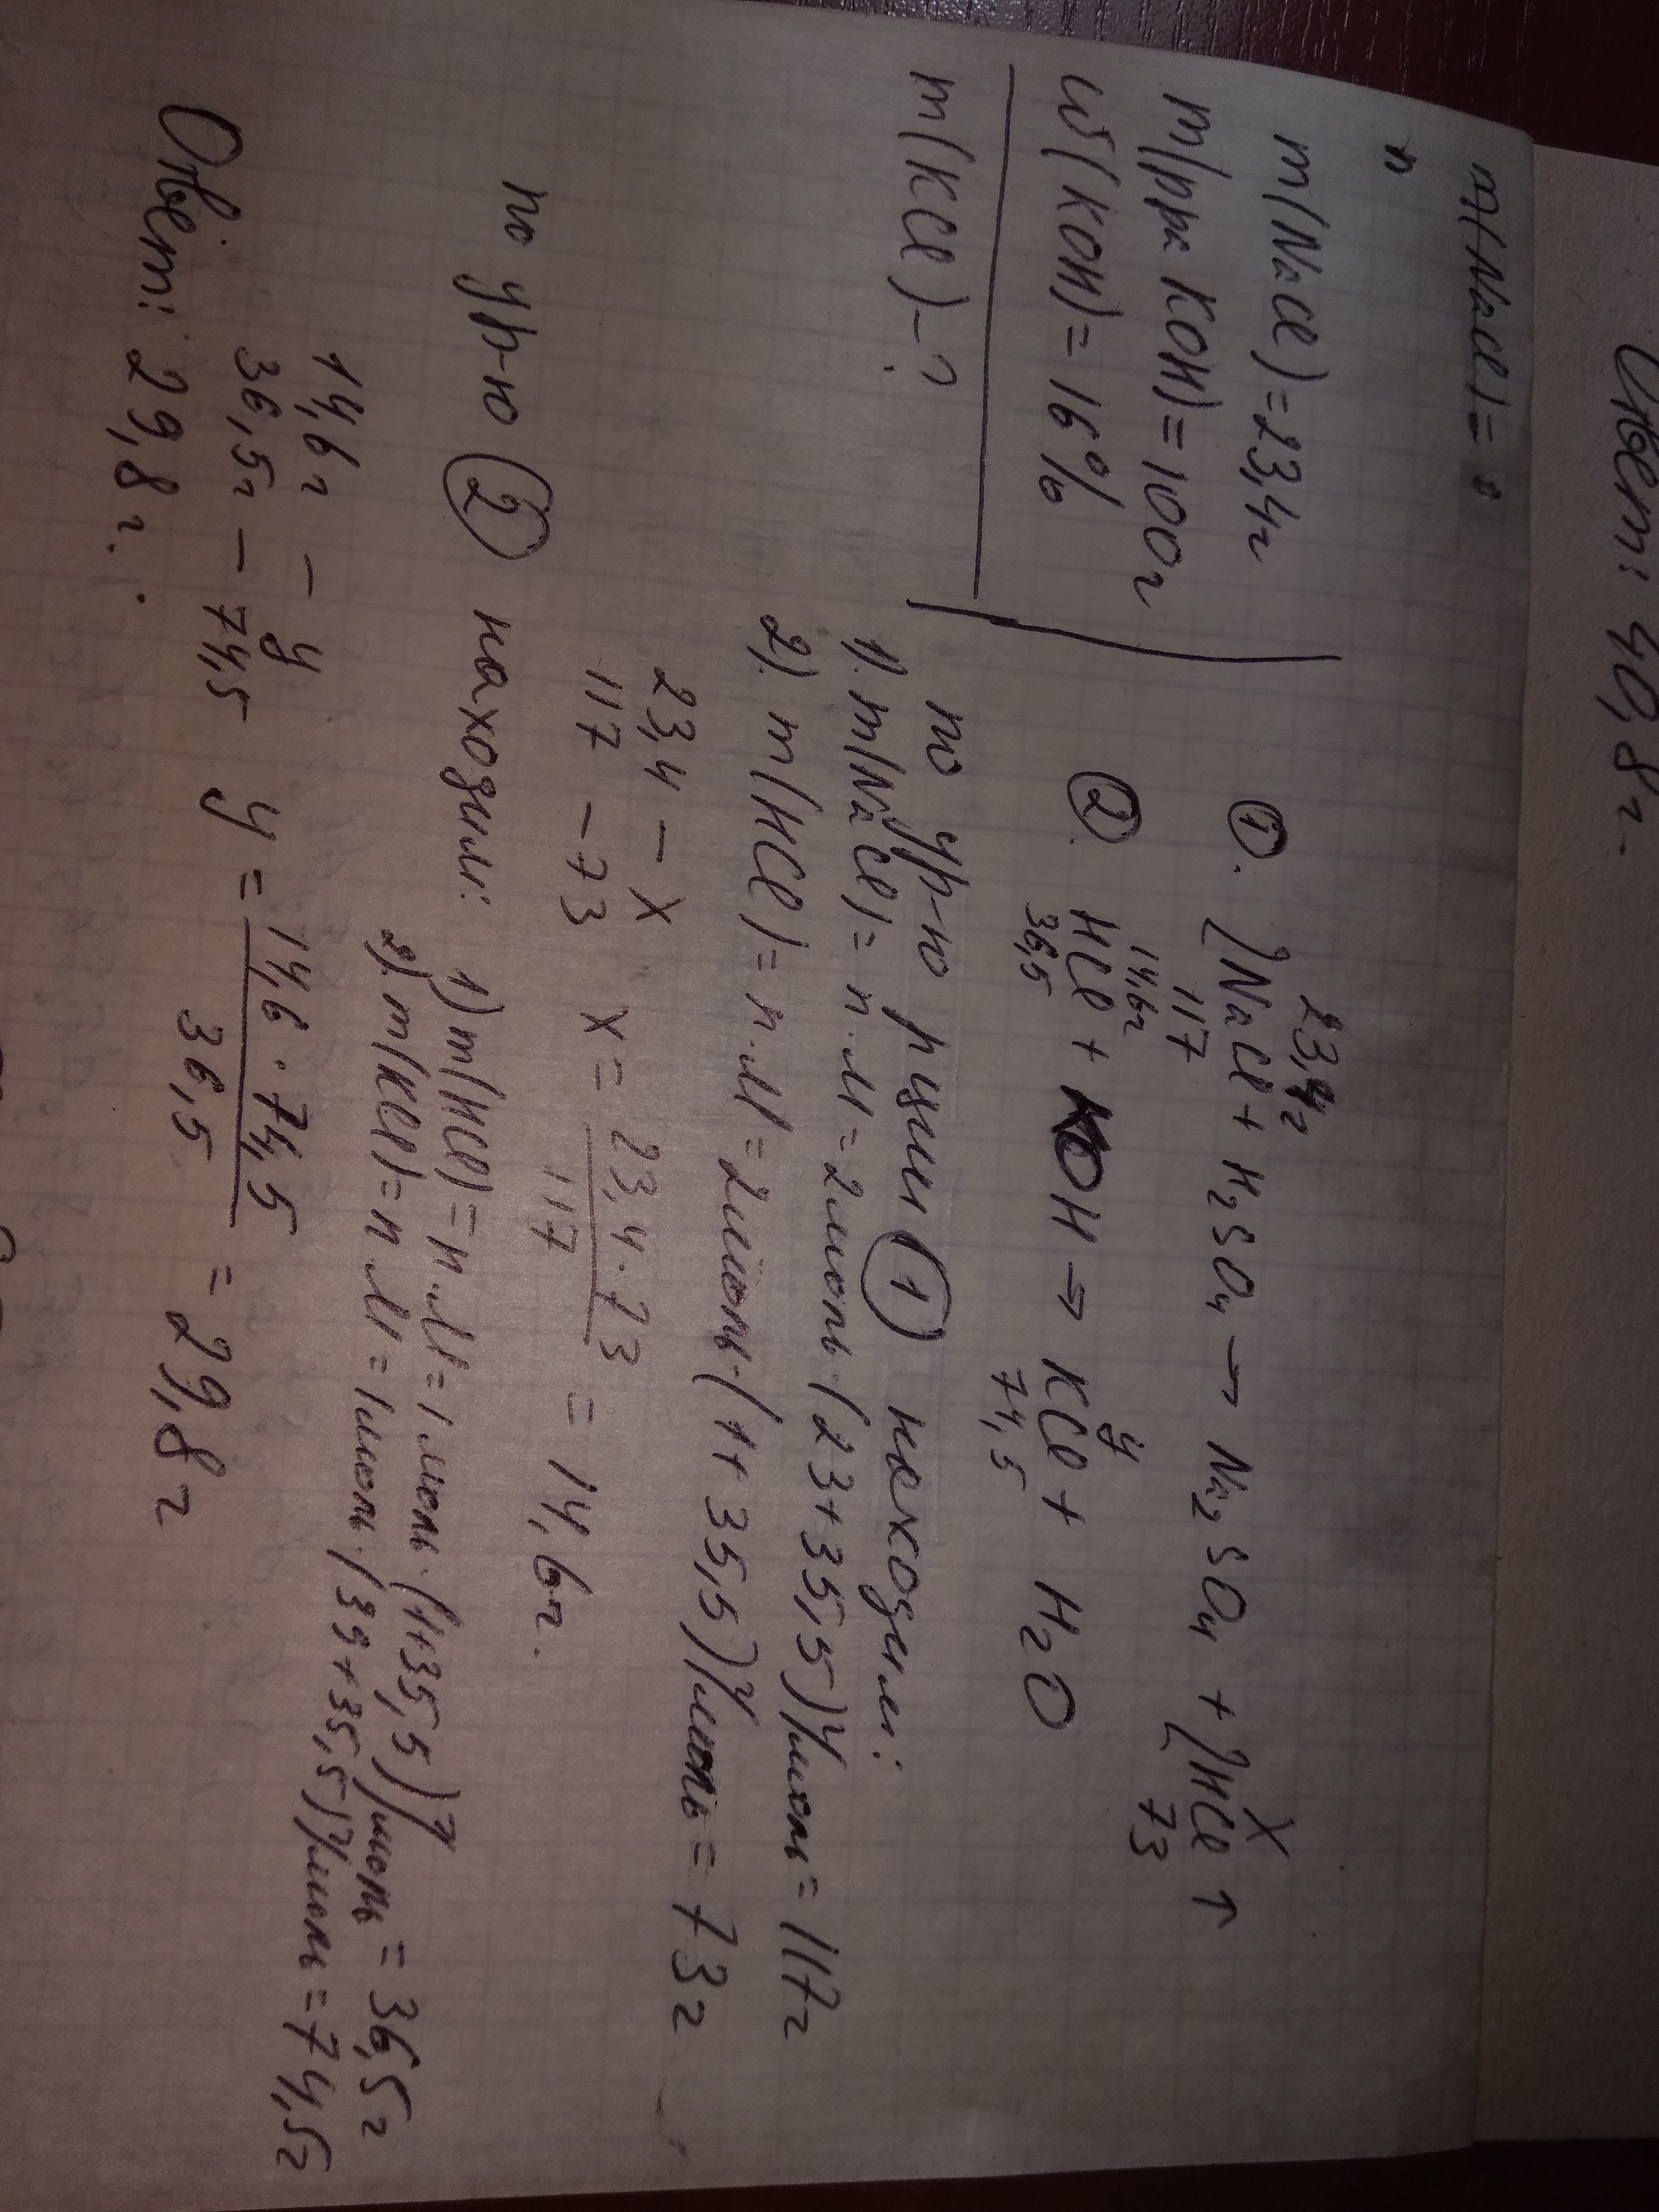 Ответ: 40,8г.
m(NaCl)=
n
m(NaCl)=23,4г
m(рра KOH)=100г
ω(KOH)=16%
m(KCl)-?
23,4г X
①. 2NaCl + H2SO4 → Na2SO4 + 2HCl ↑
117 73
14,6г y
②. HCl + KOH → KCl + H2O
36,5 74,5
по ур-ю р-ции ① находим:
1). m(NaCl) = n·M = 2моль·(23+35,5)г/моль = 117г
2). m(HCl) = n·M = 2моль·(1+35,5)г/моль = 73г
23,4 – X
117 – 73
X = 23,4·73 / 117 = 14,6г.
по ур-ю ② находим:
1) m(HCl) = n·M = 1моль·(1+35,5)г/моль = 36,5г
2). m(KCl) = n·M = 1моль·(39+35,5)г/моль = 74,5г
14,6г – y
36,5г – 74,5
y = 14,6·74,5 / 36,5 = 29,8г
Ответ: 29,8г.